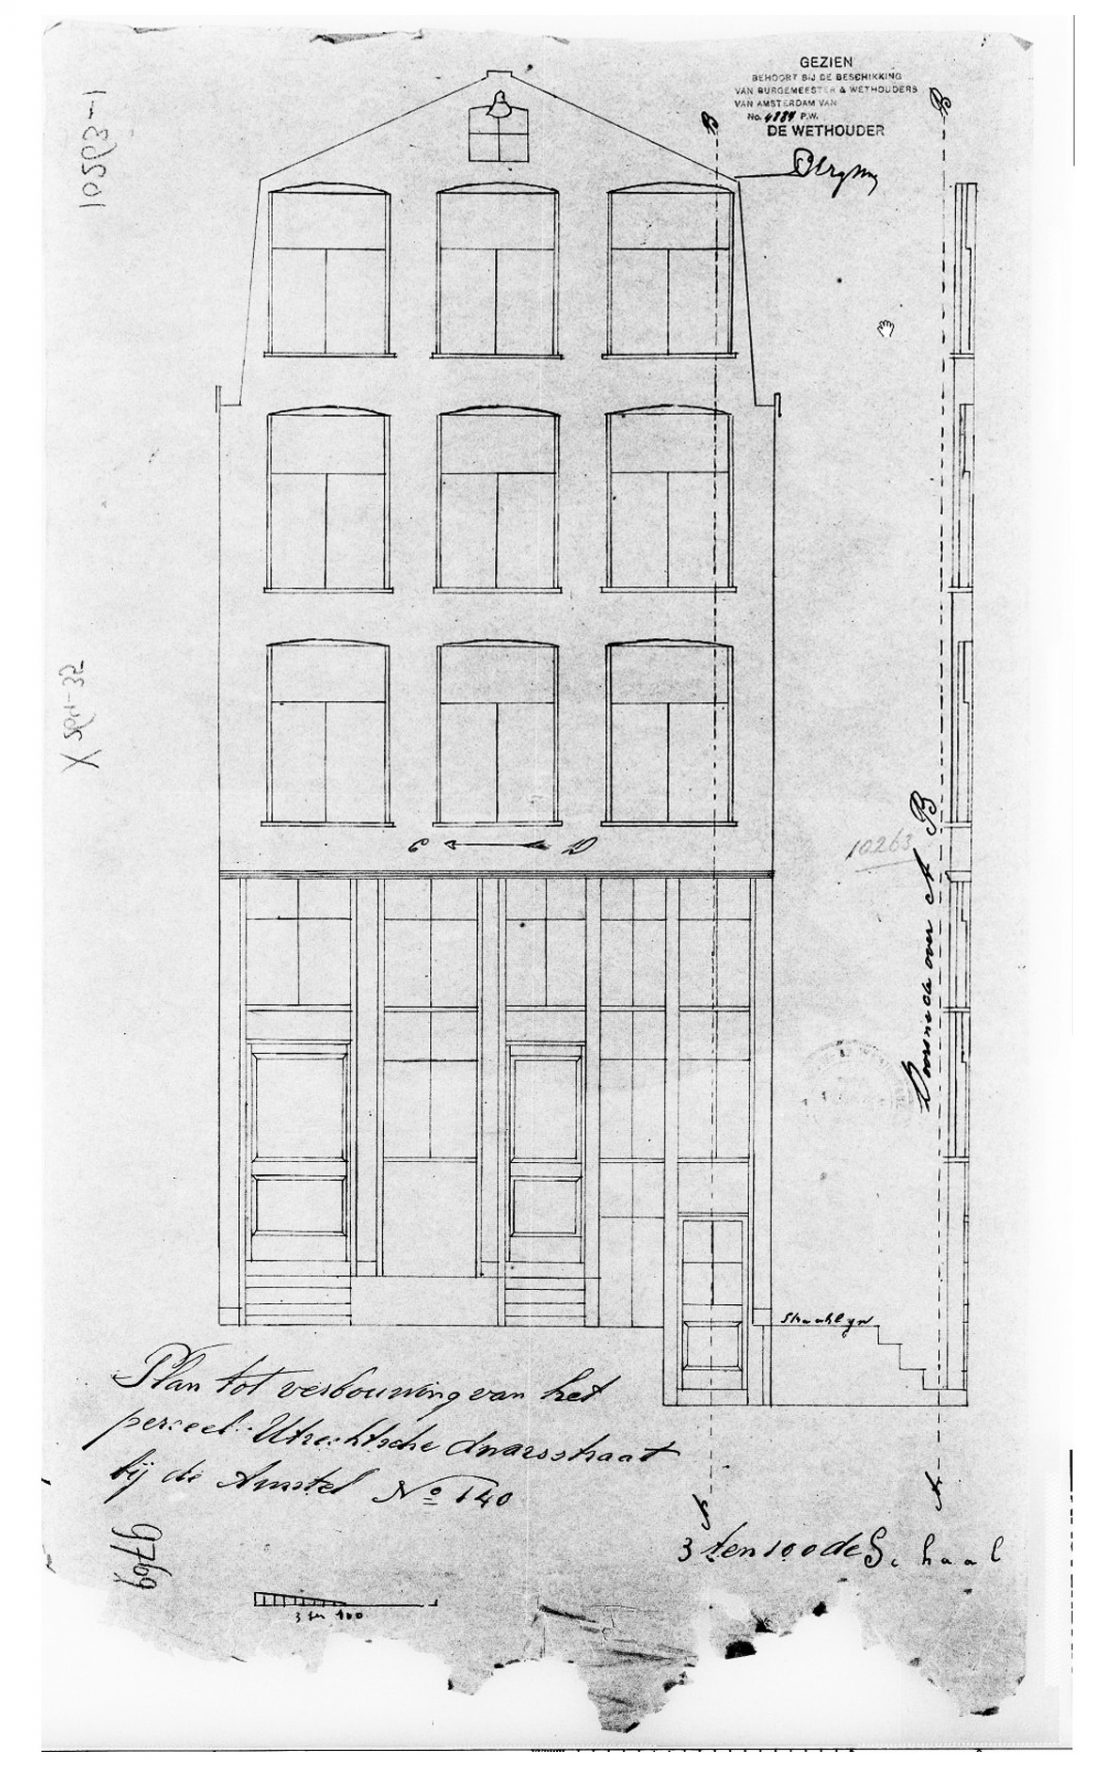 GEZIEN
BEHOORT BIJ DE BESCHIKKING
VAN BURGEMEESTER & WETHOUDERS
VAN AMSTERDAM VAN
No. 4884 P.W.
DE WETHOUDER
B
B
10263-1
X 
C D
10263
Doorsnede over A B
Straatlyn
Plan tot verbouwing van het
perceel Utrechtsche dwarsstraat
bij de Amstel No 140
A
A
3 ten 100 de Schaal
9769
3 ten 100